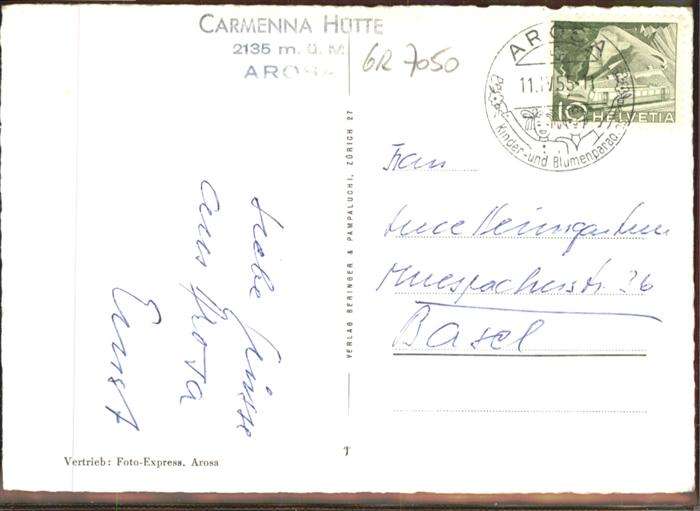 CARMENNA HÜTTE
2135 m. ü. M
AROSA
GR 7050
AROSA
11.IV.55-11
Kinder- und Blumenparad
10
HELVETIA
VERLAG BERINGER & PAMPALUCHI, ZÜRICH 27
Liebe Grüsse
aus Arosa
Ernst
Frau
Heimgartner
36
Basel
Vertrieb: Foto-Express, Arosa